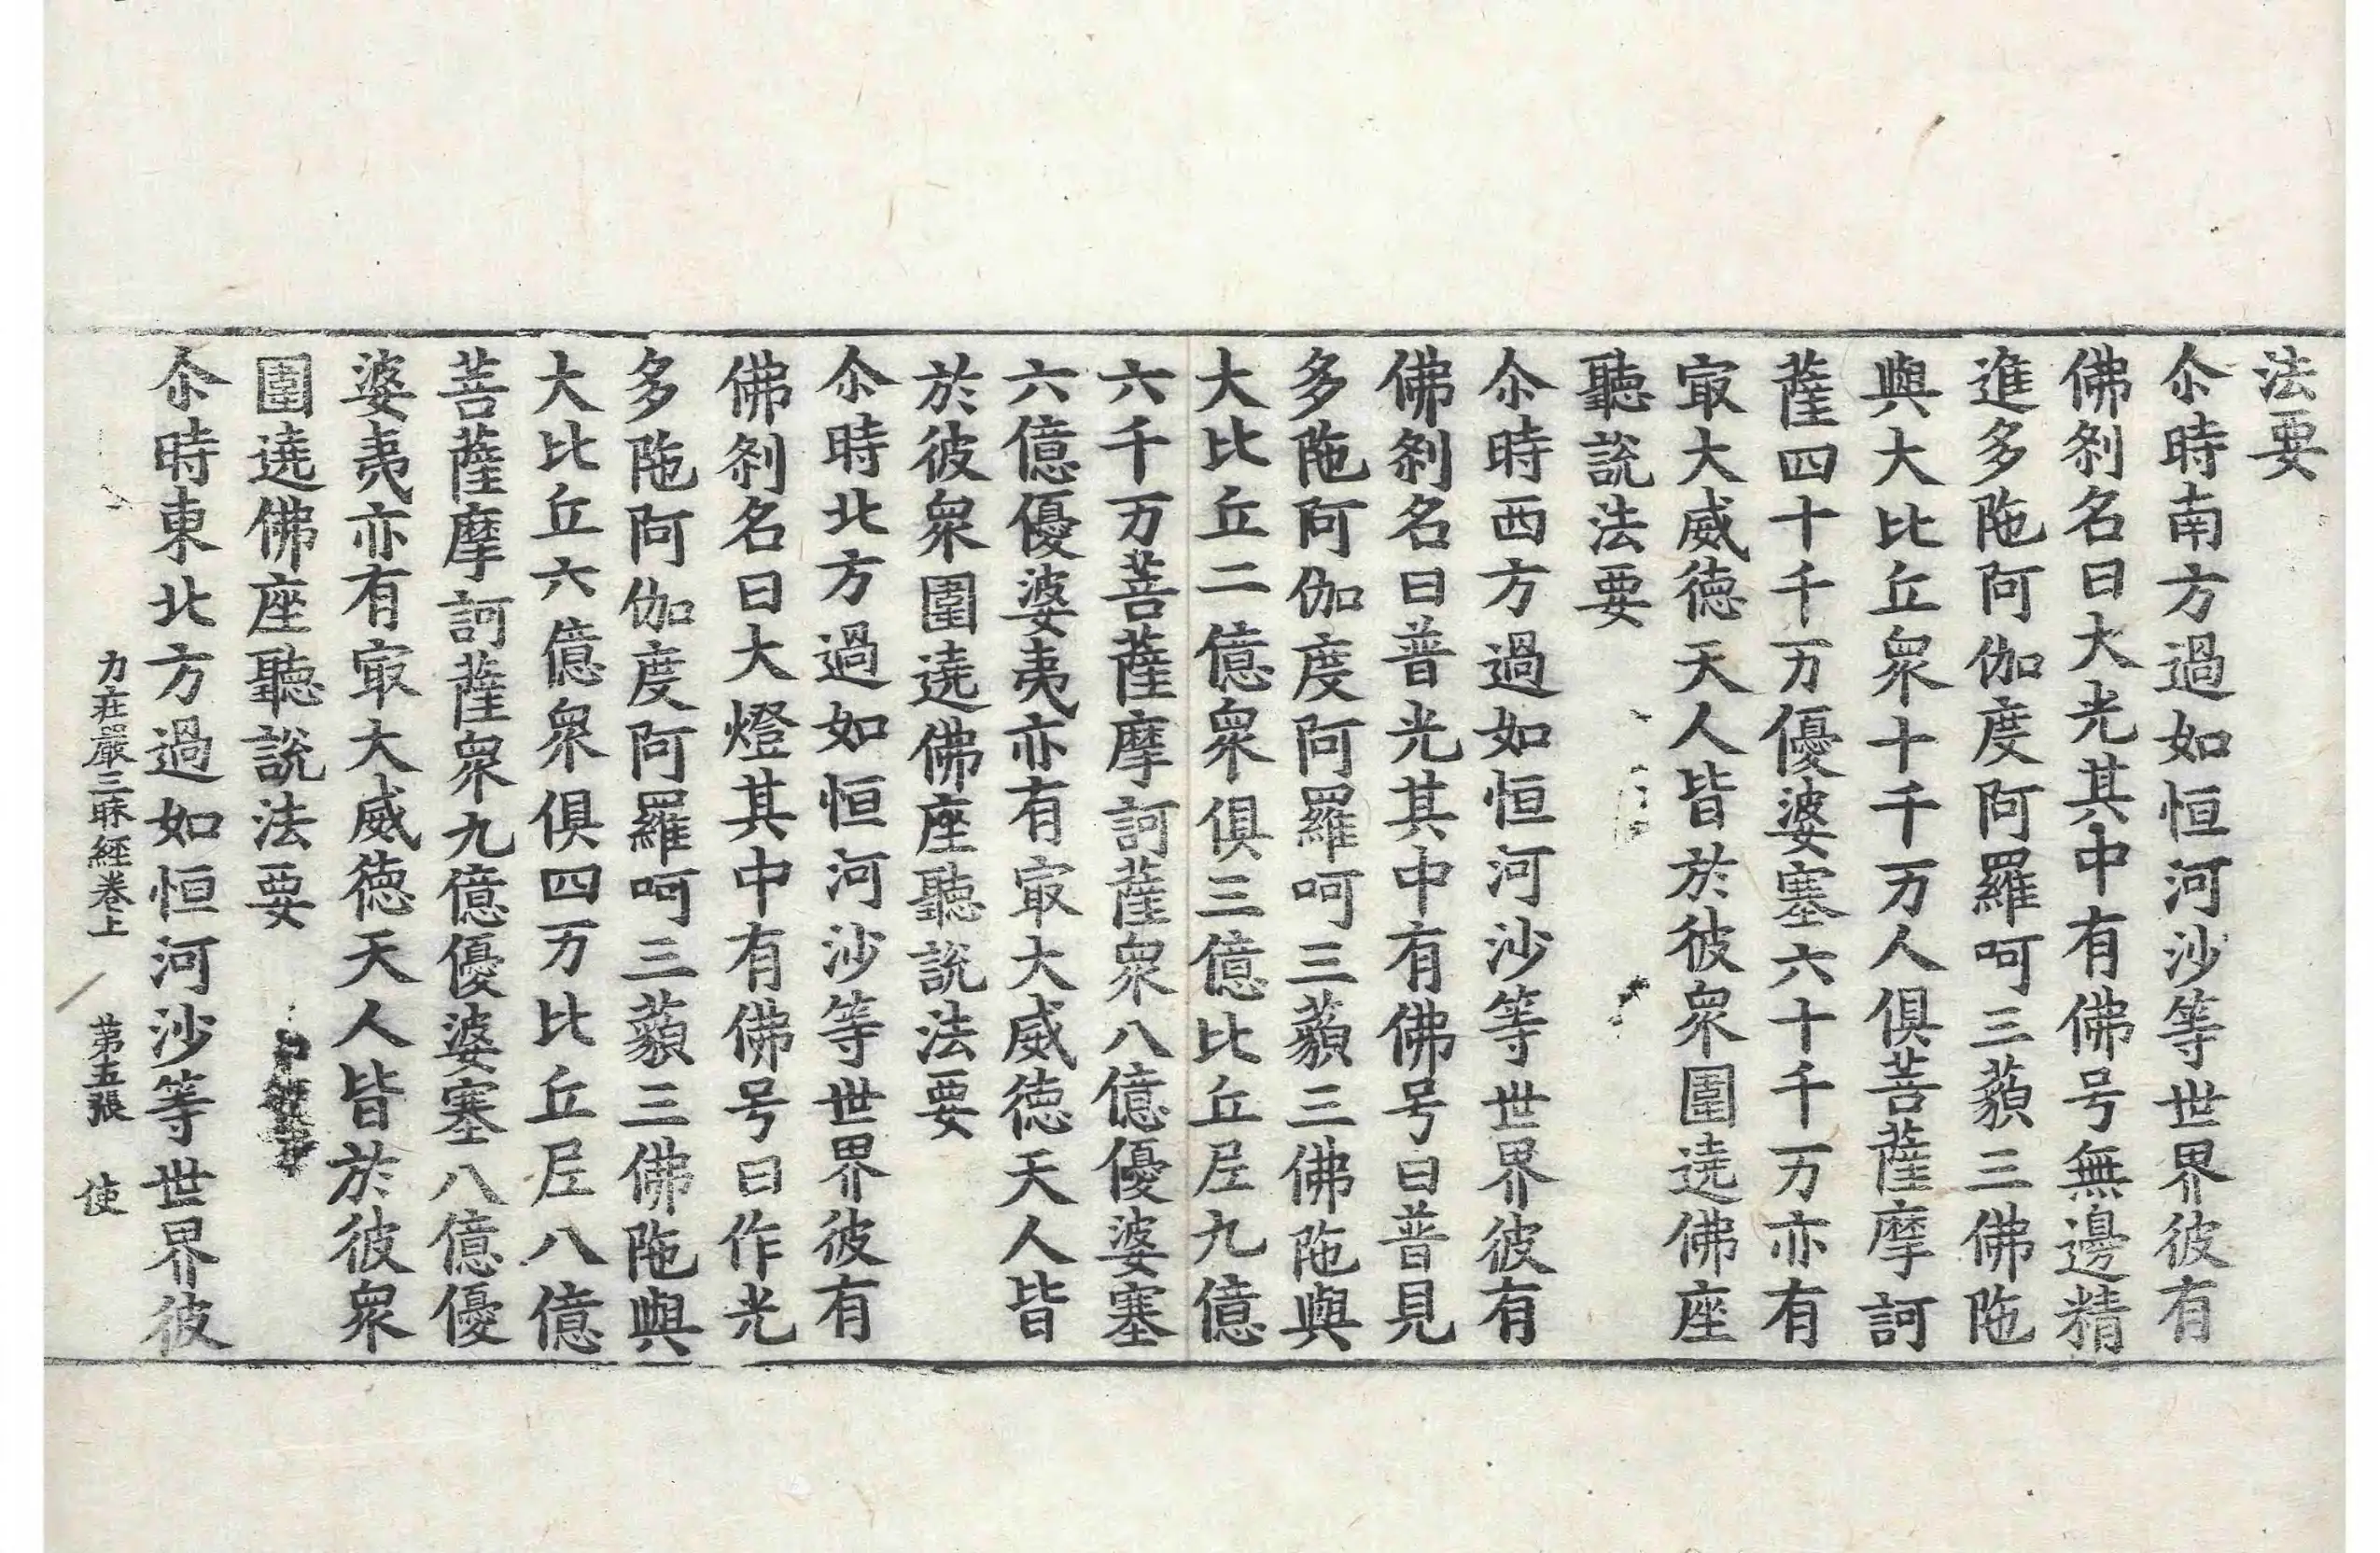 法要
尒時南方過如恒河沙等世界彼有
佛刹名曰大光其中有佛号無邊精
進多陁阿伽度阿羅呵三藐三佛陁
與大比丘衆十千万人俱菩薩摩訶
薩四十千万優婆塞六十千万亦有
㝡大威德天人皆於彼衆圍遶佛座
聽說法要
尒時西方過如恒河沙等世界彼有
佛刹名曰普光其中有佛号曰普見
多陁阿伽度阿羅呵三藐三佛陁與
大比丘二億衆俱三億比丘尼九億
六千万菩薩摩訶薩衆八億優婆塞
六億優婆夷亦有㝡大威德天人皆
於彼衆圍遶佛座聽說法要
尒時北方過如恒河沙等世界彼有
佛刹名曰大燈其中有佛号曰作光
多陁阿伽度阿羅呵三藐三佛陁與
大比丘六億衆俱四万比丘尼八億
菩薩摩訶薩衆九億優婆塞八億優
婆夷亦有㝡大威德天人皆於彼衆
圍遶佛座聽說法要
尒時東北方過如恒河沙等世界彼
力莊嚴三昧經卷上 第五張 使